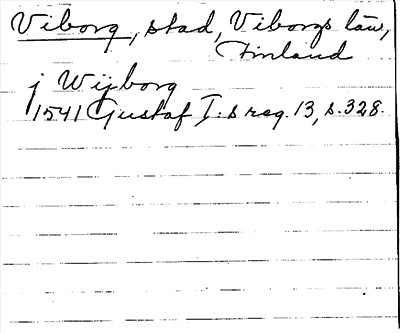 Viborg, stad, Viborgs län,
Finland
j Wijborg
1541 Gustaf I:s reg. 13, s. 328.